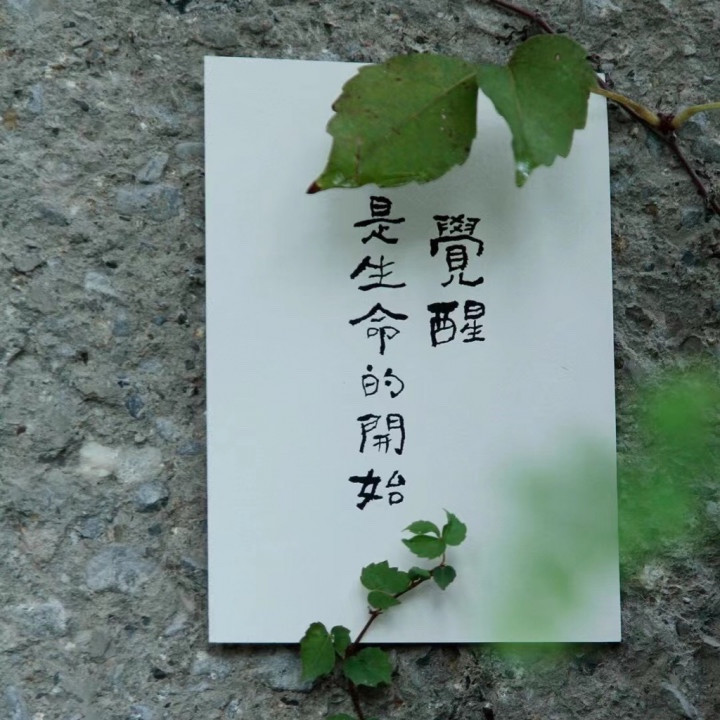 覺醒
是生命的開始